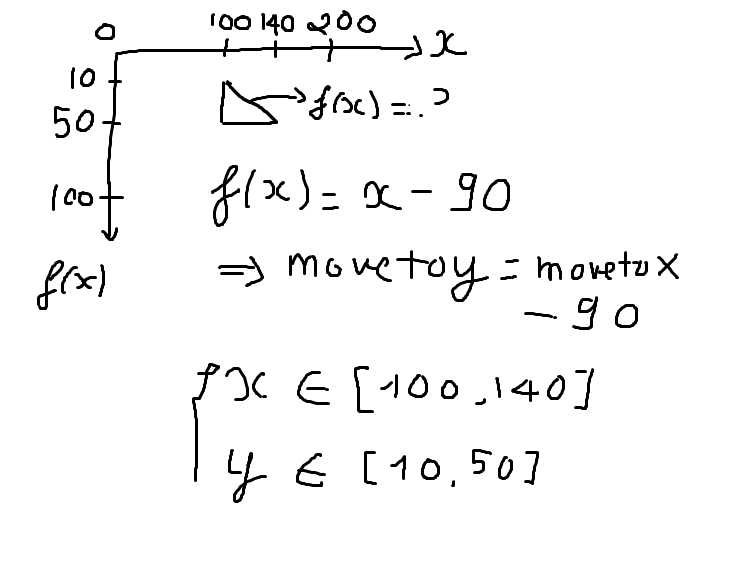 0
100 140 200
x
10
f(x) = .?
50
100
f(x) = x - 90
f(x)
⇒ movetoy = movetox
- 90
x ∈ [100, 140]
y ∈ [10, 50]